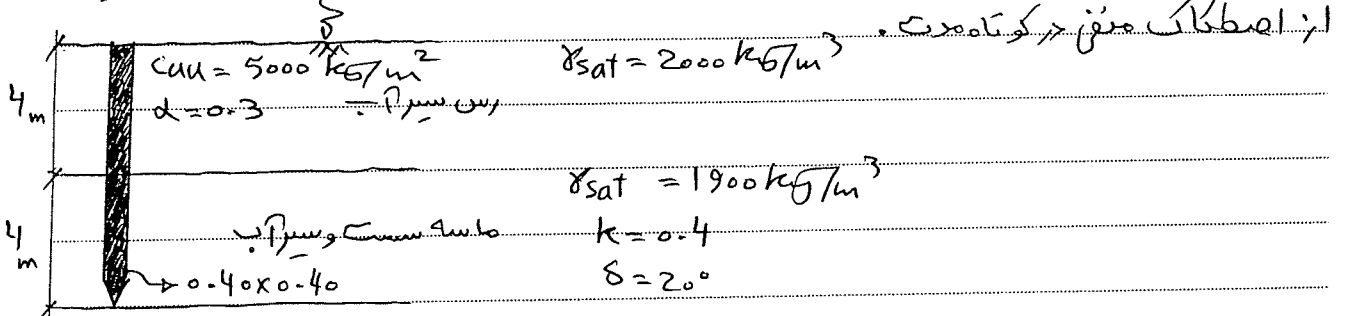 از اصطکاک منفی در کوتاه‌مدت .
Cuu = 5000 kg/m² γsat = 2000 kg/m³
4m α = 0.3 رس سیرآب
γsat = 1900 kg/m³
4m ماسه سست و سیرآب k = 0.4
0.40x0.40 δ = 20°